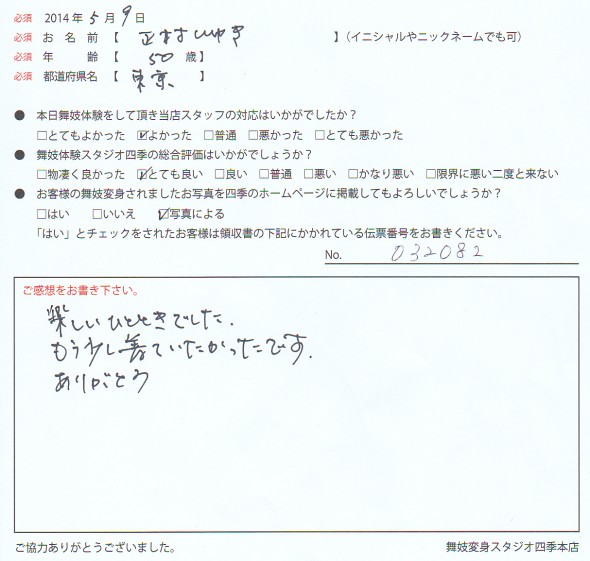 必須 2014年 5月 9日
必須 お名前【 】(イニシャルやニックネームでも可)
必須 年齢【 50 歳】
必須 都道府県名【 東京 】
● 本日舞妓体験をして頂き当店スタッフの対応はいかがでしたか?
□とてもよかった ☑よかった □普通 □悪かった □とても悪かった
● 舞妓体験スタジオ四季の総合評価はいかがでしょうか?
□物凄く良かった ☑とても良い □良い □普通 □悪い □かなり悪い □限界に悪い二度と来ない
● お客様の舞妓変身されましたお写真を四季のホームページに掲載してもよろしいでしょうか?
□はい □いいえ ☑写真による
「はい」とチェックをされたお客様は領収書の下記にかかれている伝票番号をお書きください。
No. 032082
ご感想をお書き下さい。
楽しいひとときでした.
もう少し着ていたかったです.
ありがとう
ご協力ありがとうございました。 舞妓変身スタジオ四季本店